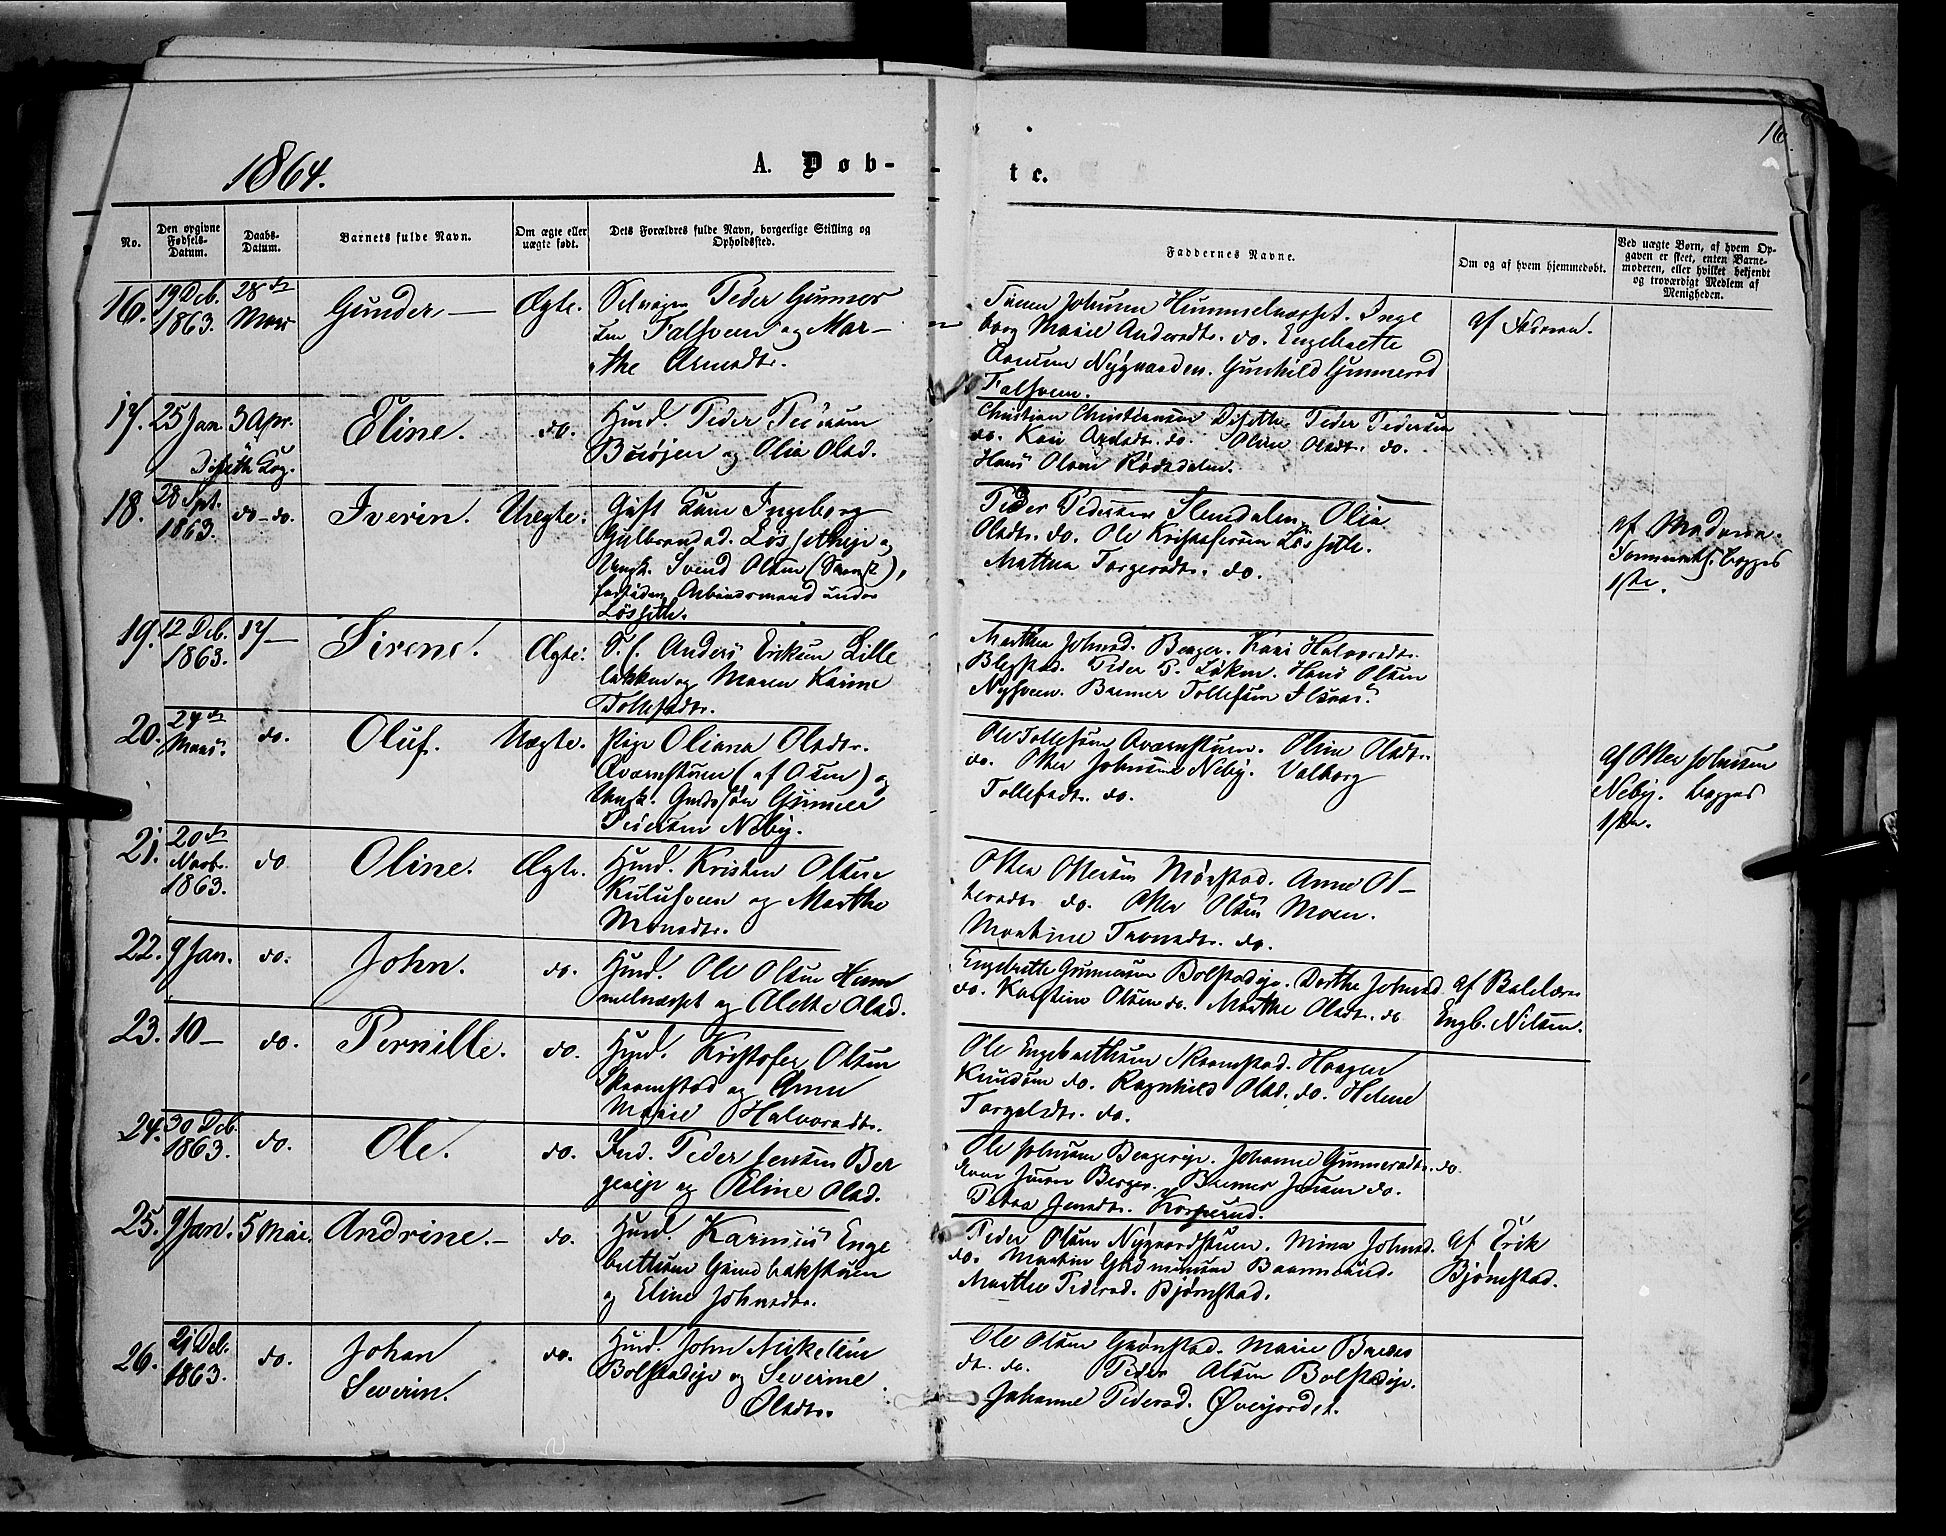 1864.
A. Døb-
te.
16.
No.
Den opgivne Fødsels-Datum.
Daabs-Datum.
Barnets fulde Navn.
Om ægte eller uægte født.
Dets Forældres fulde Navn, borgerlige Stilling og Opholdssted.
Faddernes Navne.
Om og af hvem hjemmedøbt.
Ved uægte Børn, af hvem Opgaven er skeet, enten Barnemoderen, eller hvilket bekjendt og troværdigt Medlem af Menigheden.
16. 19 Deb. 1863. 28de Mars Gunder — Ægte.
Peder Gunner
sen Falsveen og Mar-
the Arnesdtr.
Johnsen Hummelnæsset. Inge
borg Marie Andersdtr. do. Engebrette
Nygaarden. Gunhild Gunnersd
Falsveen.
af Faderen.
17. 25 Jan. 3 Apr. Eline. do.
Diseth Cap.
Husd. Peder Pedersen
og Olia Olsd.
Christian Christiansen Disethe. Peder Pedersen
do. Kari do. Oline Olsdtr. do.
Hans Olsen Rødsdalen.
18. 28 Spt. 1863. do - do. Iverin. Uægte.
Ingeborg
Gulbrandsd. Løssetheje og
Ungk. Svend Olsen
Arbeidsmand under
Løssethe.
Peder Pedersen Stendalen, Olia
Olsdtr. do. Ole Kristofersen Løssethe.
Mathea Torgersdtr. do.
af Moderen.
begges
1ste.
19. 12 Deb. 1863. 17 — Sirene. Ægte.
S. f. Anders Eriksen Lille
løkken og Maren Karine
Tollefsdtr.
Marthea Johnsd. Berger. Kari Halvorsdtr.
Blegstad. Peder P. Løken. Hans Olsen
Nysveen. Bremer Tollefsen
20. 24de Mars. do. Oluf. Uægte.
Pige Oliana Olsdtr.
Qværnstuen (af Osen) og
Ungk. Gaardsøn Gunner
Pedersen Neby.
Ole Tollefsen Qværnstuen. Oline Olsdtr.
do. Otter Johnsen Neby. Valborg
Tollefsdtr. do.
af Otter Johnsen
Neby. begges
1ste.
21. 20de Novb. 1863. do Oline. Ægte.
Husd. Kristen Olsen
Kulusveen og Marthe
Monsdtr.
Otter Ottersen Mørstad. Anne Ot-
tersdtr do. Otter Olsen Moen.
Martine do.
22. 9 Jan. do. John. do.
Husd. Ole Olsen Hum
melnæsset og Alethe Olsd.
Engebrette Gunnersen Bolstadeje. Dorthe Johnsd.
do. Karstine Olsen do. Marthe Olsdtr. do
af
Engb. Nilsen.
23. 10 — do. Pernille. do.
Husd. Kristofer Olsen
Kramstad og Anne
Marie Halvorsdtr.
Ole Engebrethsen Kramstad. Haagen
Knudsen do. Ragnhild Olsd. do. Helene
do.
24. 30 Deb. 1863. do. Ole. do.
Ind. Peder Jensen Ber
gereje og Eline Olsd.
Ole Johnsen Bergereje. Johanne Gunnersdtr. do.
Berger. Bremer Jensen do.
Petra Jensdtr. Korperud.
25. 9 Jan. 5 Mai. Andrine. — do.
Husd. Karinius Enge
brettsen Grindbakstuen
og Eline Johnsdtr.
Peder Olsen Nygaardstuen. Mina Johnsd.
do. Martin Gudmunsen
Marthe Pedersd. Bjørnstad.
af Erik
Bjørnstad.
26. 21 Deb. 1863. do. Johan
Severin. do.
Husd. John Mikelsen
Bolstadeje og Severine
Olsdtr.
Ole Olsen Grønstad. Marie
do. Peder Olsen Bolstadeje.
Johanne Pedersd. Øverjordet.